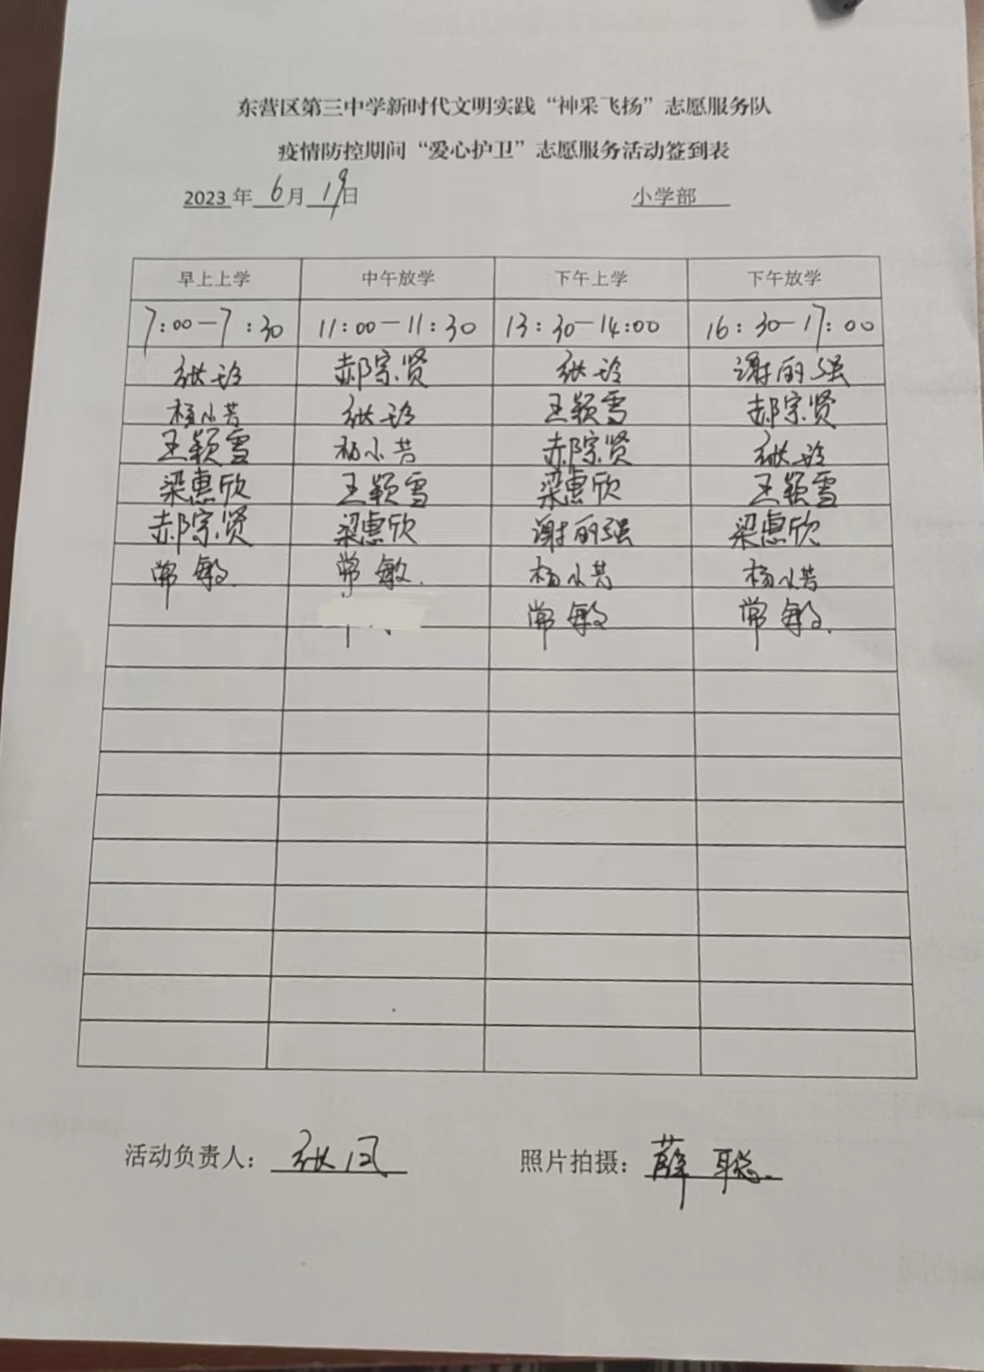 东营区第三中学新时代文明实践“神采飞扬”志愿服务队
疫情防控期间“爱心护卫”志愿服务活动签到表
2023 年 6 月 19 日 小学部
早上上学 中午放学 下午上学 下午放学
7:00-7:30 11:00-11:30 13:30-14:00 16:30-17:00
张玲 郝宗贤 张玲 谢丽强
杨小芳 张玲 王颖雪 郝宗贤
王颖雪 杨小芳 郝宗贤 张玲
梁惠欣 王颖雪 梁惠欣 王颖雪
郝宗贤 梁惠欣 谢丽强 梁惠欣
常敏 常敏 杨小芳 杨小芳
常敏 常敏
活动负责人：张凤 照片拍摄：薛聪